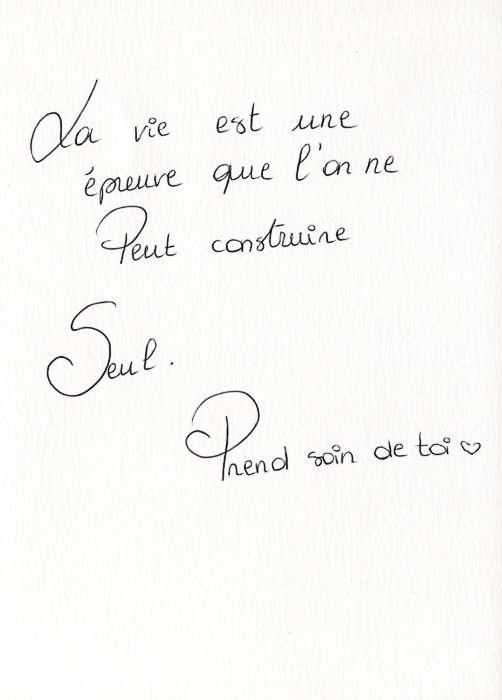 La vie est une
épreuve que l'on ne
Peut construire
Seul.
Prend soin de toi ♡